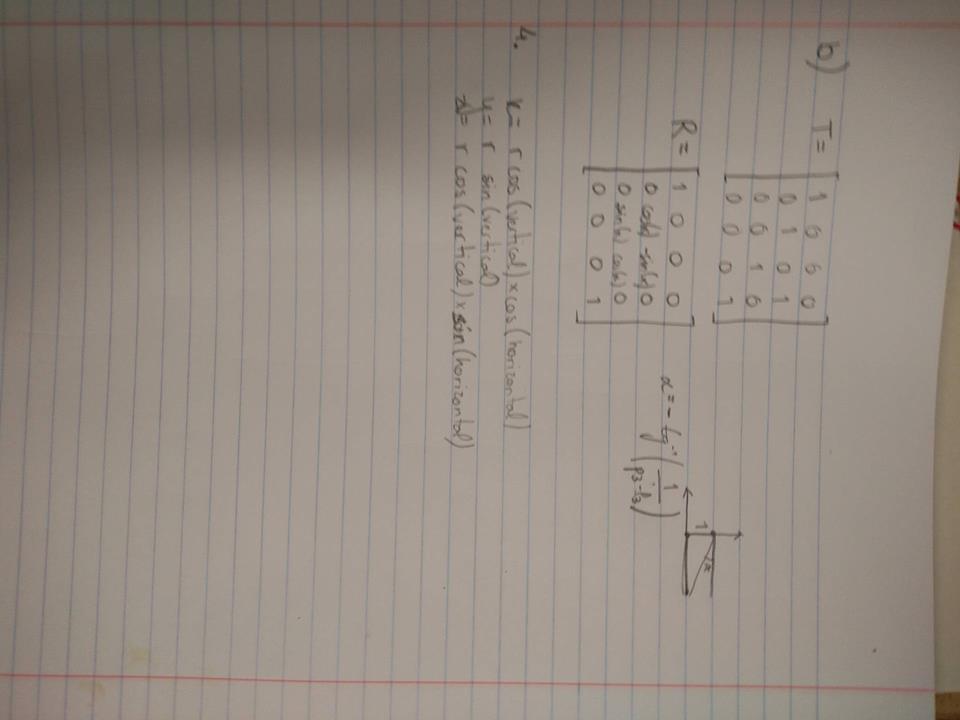 b) T= [ 1 0 0 0
0 1 0 1
0 0 1 0
0 0 0 1 ]
1 α
R= [ 1 0 0 0
0 cos(α) -sin(α) 0
0 sin(α) cos(α) 0
0 0 0 1 ]
α=-tg⁻¹(1/(p3-l3))
4. x= r cos(vertical)×cos(horizontal)
y= r sin(vertical)
z= r cos(vertical)×sin(horizontal)